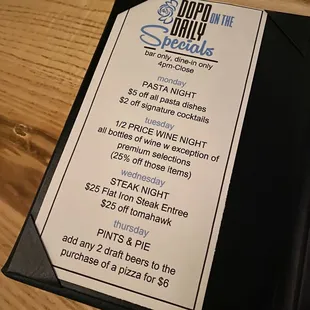 OOPO ON THE
DAILY
Specials
bar only, dine-in only
4pm-Close
monday
PASTA NIGHT
$5 off all pasta dishes
$2 off signature cocktails
tuesday
1/2 PRICE WINE NIGHT
all bottles of wine w exception of
premium selections
(25% off those items)
wednesday
STEAK NIGHT
$25 Flat Iron Steak Entree
$25 off tomahawk
thursday
PINTS & PIE
add any 2 draft beers to the
purchase of a pizza for $6